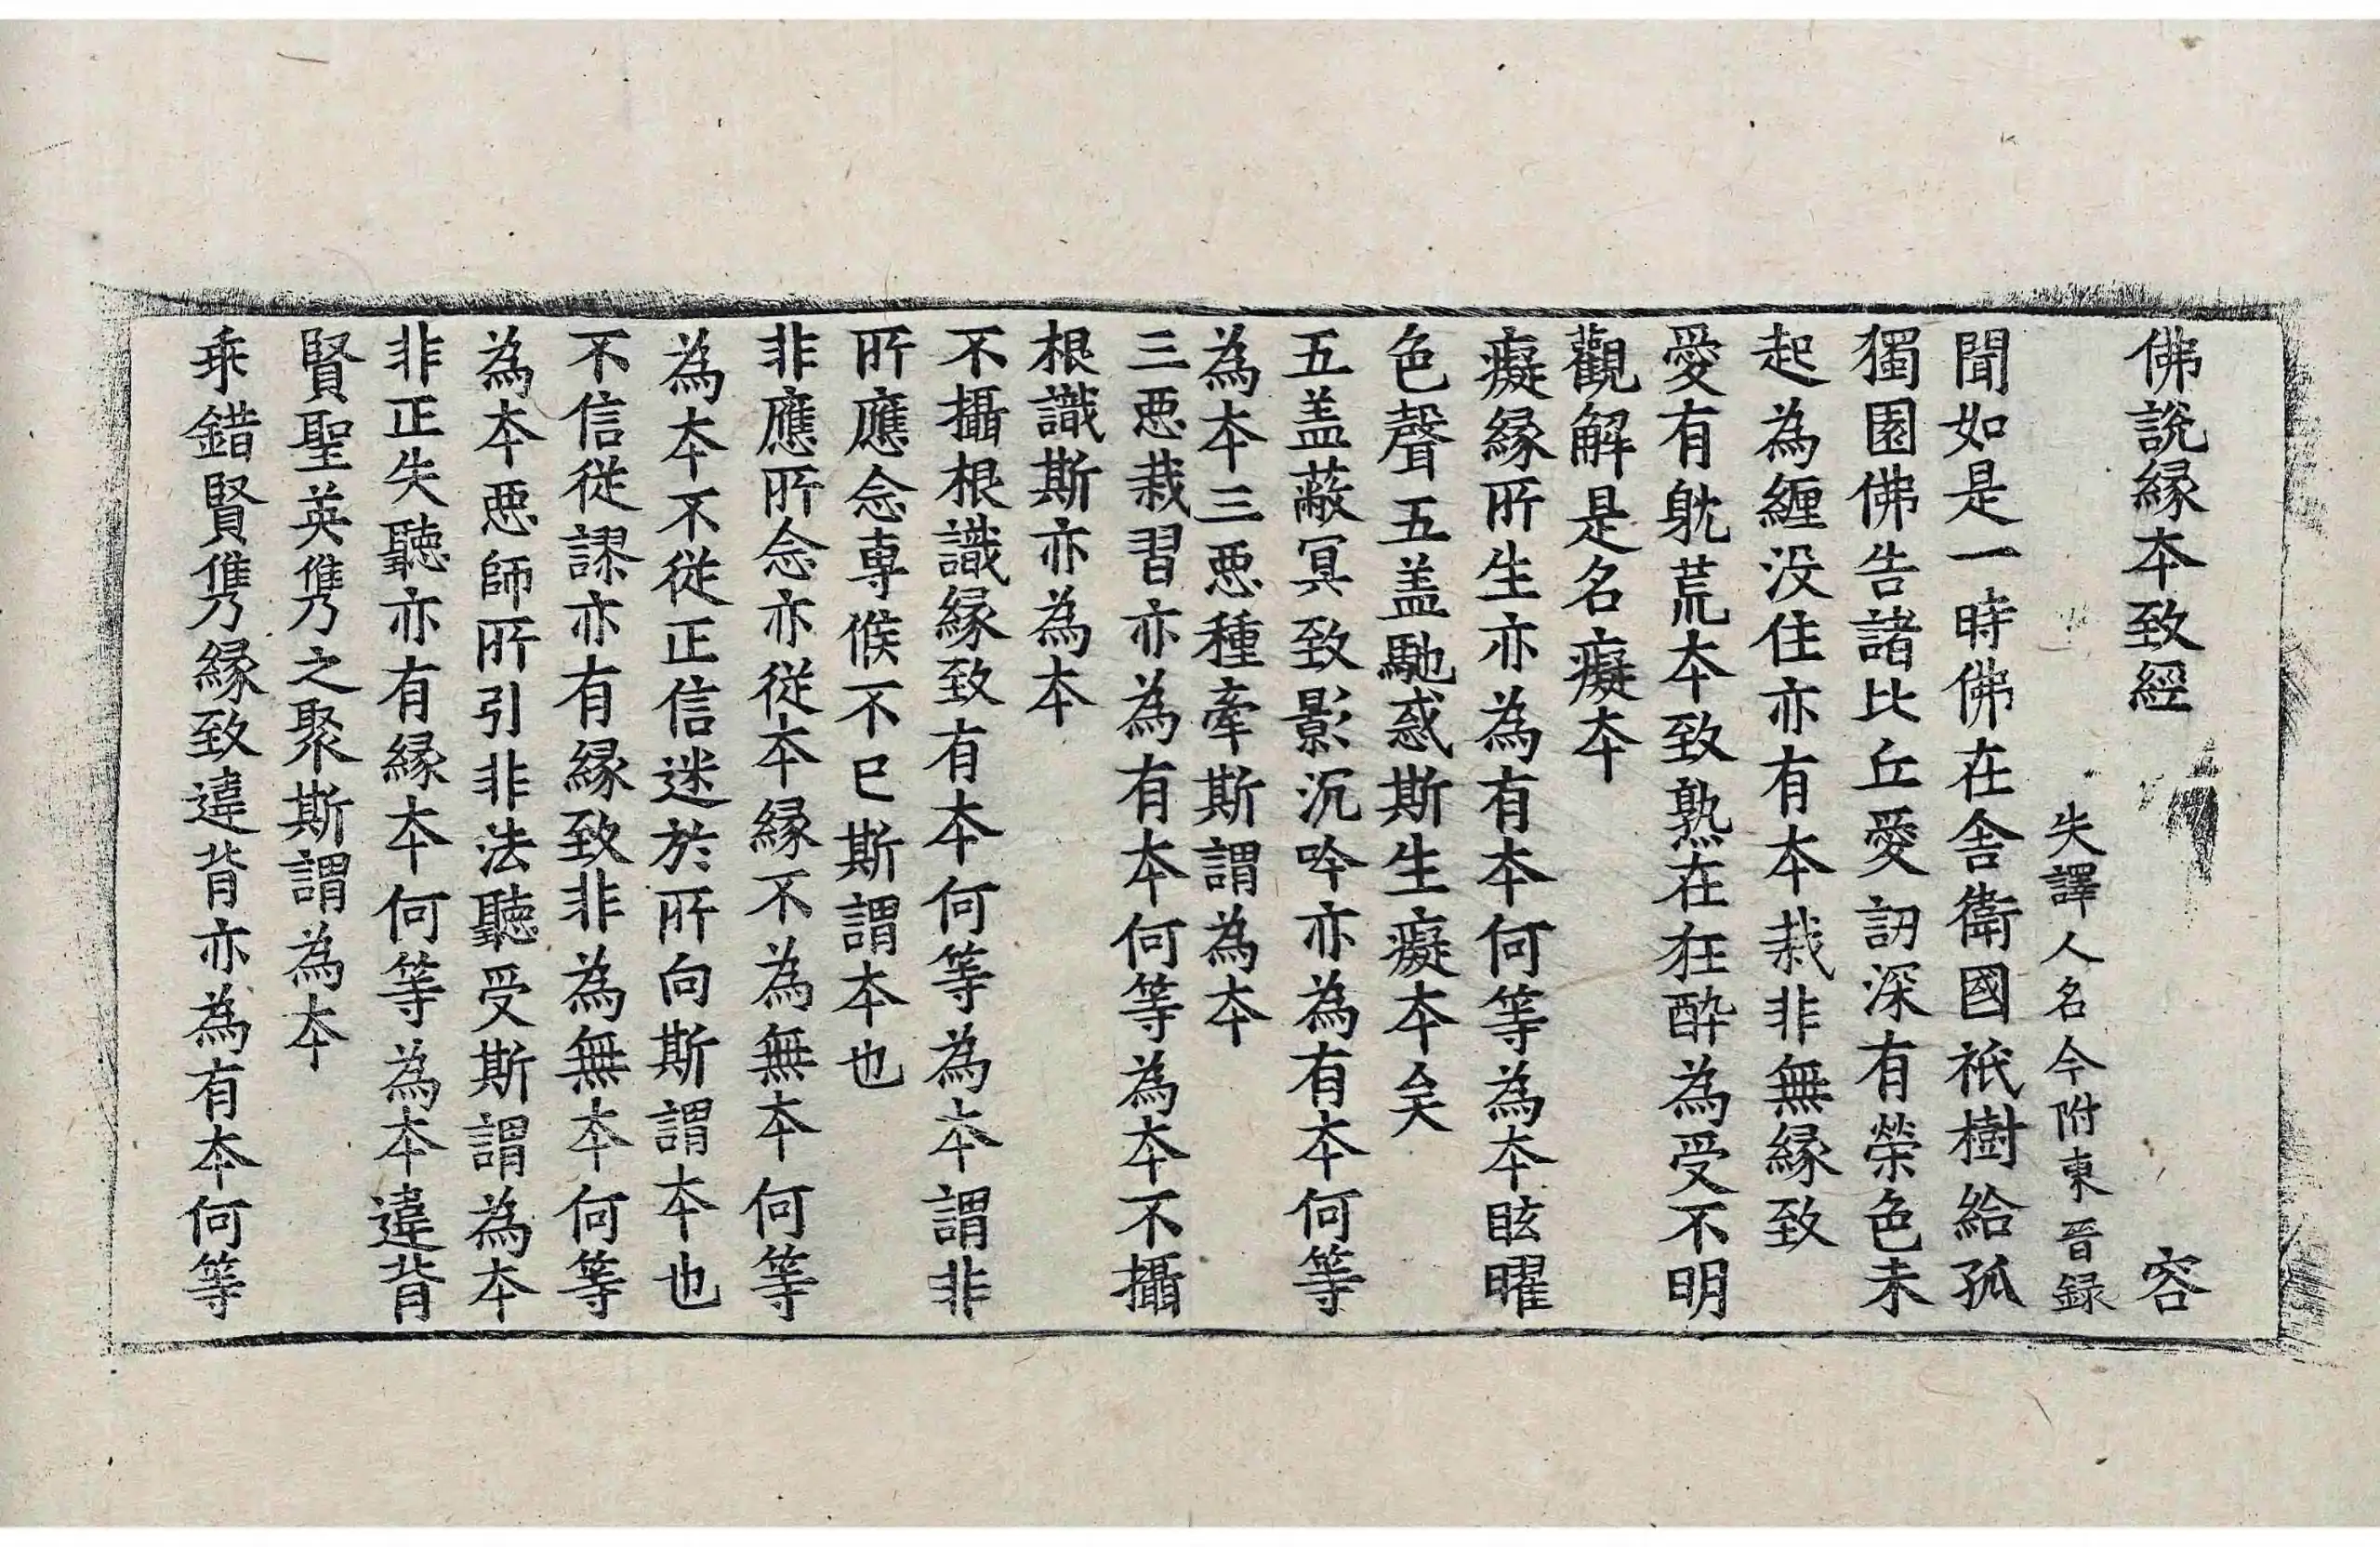 佛說縁本致經 容
失譯人名今附東晉録
聞如是一時佛在舎衛國祇樹給孤
獨園佛告諸比丘愛訒深有榮色未
起為纏没住亦有本栽非無縁致
愛有躭荒本致熟在狂酔為受不明
觀解是名癡本
癡縁所生亦為有本何等為本眩曜
色聲五盖馳惑斯生癡本矣
五盖蔽冥致影沉吟亦為有本何等
為本三惡種牽斯謂為本
三惡栽習亦為有本何等為本不攝
根識斯亦為本
不攝根識縁致有本何等為本謂非
所應念專候不已斯謂本也
非應所念亦從本縁不為無本何等
為本不從正信迷於所向斯謂本也
不信從謬亦有縁致非為無本何等
為本惡師所引非法聽受斯謂為本
非正失聽亦有縁本何等為本違背
賢聖英儁之聚斯謂為本
乖錯賢儁縁致違背亦為有本何等